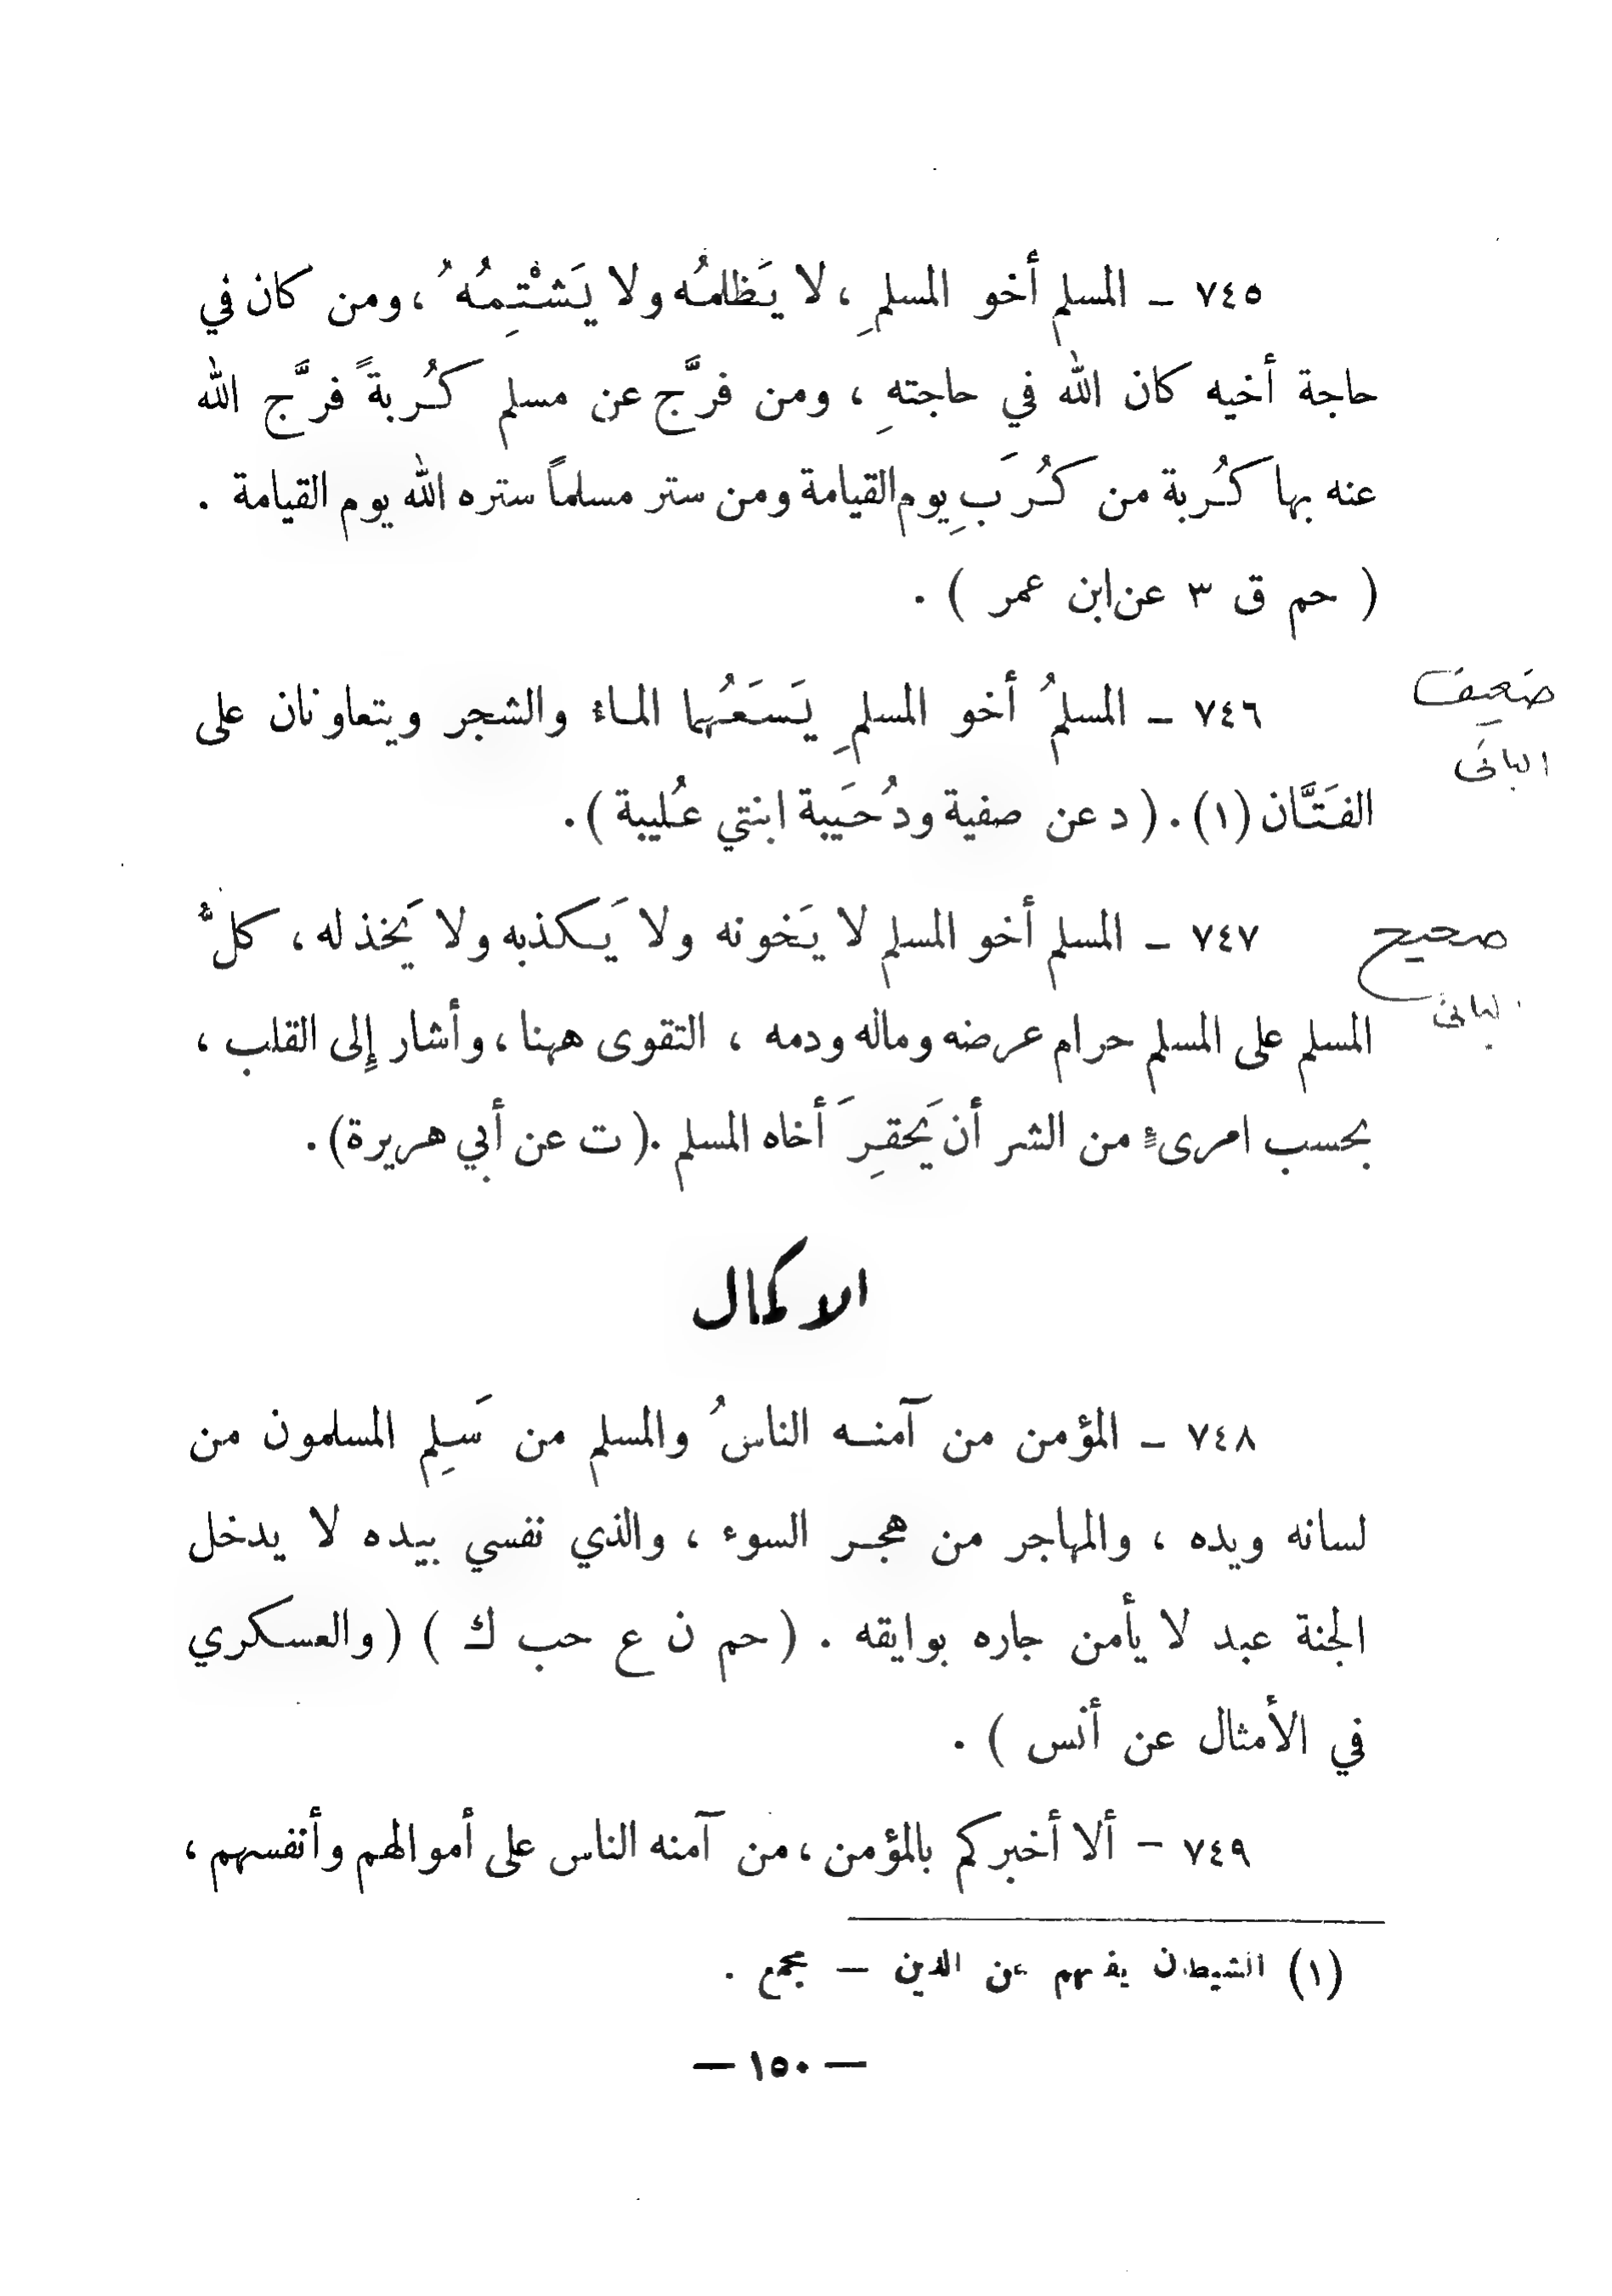 ٧٤٥ - المسلم أخو المسلمِ، لا يَظلمُه ولا يَشْتِمُهُ، ومن كان في
حاجة أخيه كان الله في حاجتهِ، ومن فرَّج عن مسلم كُربةً فرَّج الله
عنه بها كُربة من كُرَبِ يوم القيامة ومن ستر مسلماً ستره الله يوم القيامة .
( حم ق ٣ عن ابن عمر ) .
ضعيف
الباني
٧٤٦ - المسلمُ أخو المسلمِ يَسَعُهما الماءُ والشجر ويتعاونان على
الفَتَّان (١). ( د عن صفية ودُحَيبة ابنتي عُليبة ).
صحيح
الباني
٧٤٧ - المسلم أخو المسلم لا يَخونه ولا يَكذبه ولا يَخذله، كلُّ
المسلم على المسلم حرام عرضه وماله ودمه ، التقوى ههنا، وأشار إلى القلب ،
بحسب امرىءٍ من الشر أن يَحقِرَ أخاه المسلم .( ت عن أبي هريرة).
الاكمال
٧٤٨ - المؤمن من آمنه الناسُ والمسلم من سَلِم المسلمون من
لسانه ويده ، والمهاجر من هجر السوء ، والذي نفسي بيده لا يدخل
الجنة عبد لا يأمن جاره بوايقه . ( حم ن ع حب ك ) ( والعسكري
في الأمثال عن أنس ) .
٧٤٩ - ألا أخبركم بالمؤمن، من آمنه الناس على أموالهم وأنفسهم ،
(١) الشيطان يفتنهم عن الدين - مجمع .
- ١٥٠ -